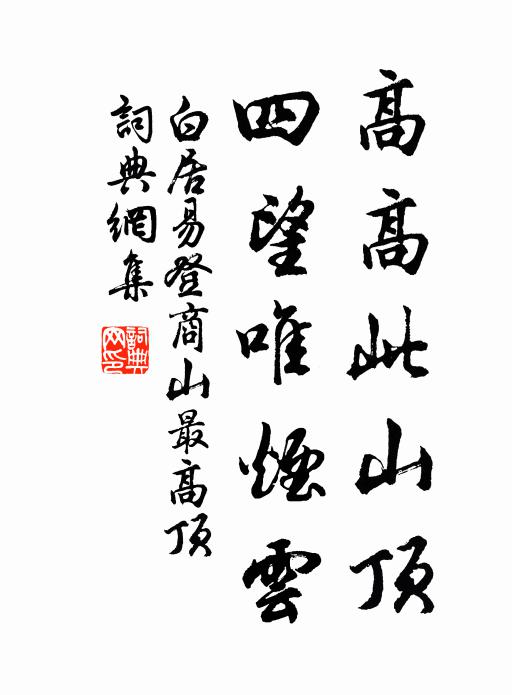 高高此山頂
四望唯煙雲
白居易登商山最高頂
詞典網集
詞典網印